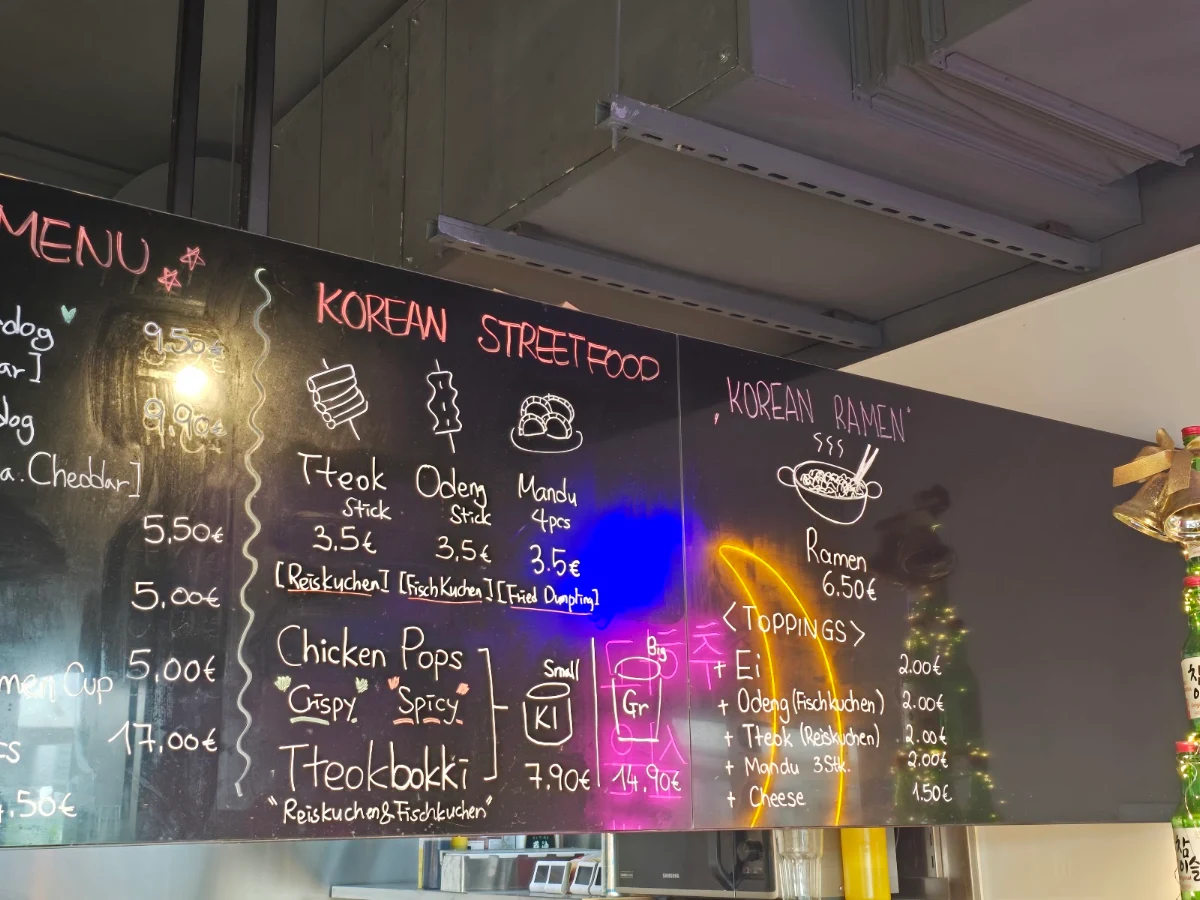 MENU
dog
9.50€
ar]
dog
9.90€
a. Cheddar]
5,50€
5,00€
5,00€
men Cup
17,00€
cs
.50€
KOREAN STREETFOOD
Tteok
Stick
3,5€
[Reiskuchen]
Odeng
Stick
3,5€
[Fischkuchen]
Mandu
4pcs
3.5€
[Fried Dumpling]
Chicken Pops
Crispy Spicy
Tteokbokki
"Reiskuchen&Fischkuchen"
Small
Kl
7,90€
Big
Gr
14,90€
"KOREAN RAMEN"
Ramen
6.50€
<TOPPINGS>
+ Ei 2.00€
+ Odeng (Fischkuchen) 2.00€
+ Tteok (Reiskuchen) 2.00€
+ Mandu 3Stk. 2.00€
+ Cheese 1.50€
SAMSUNG
참
이슬